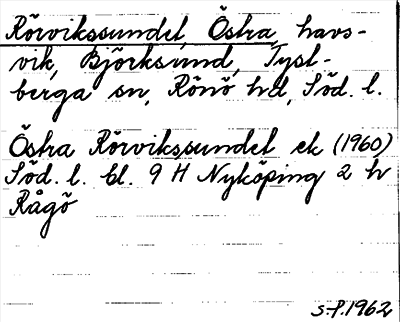 Rörvikssundet, Östra, havs-
vik, Björksund, Tyst-
berga sn, Rönö hd, Söd. l.
Östra Rörvikssundet ek (1960)
Söd. l. bl. 9 H Nyköping 2 h
Rågö
S.P. 1962